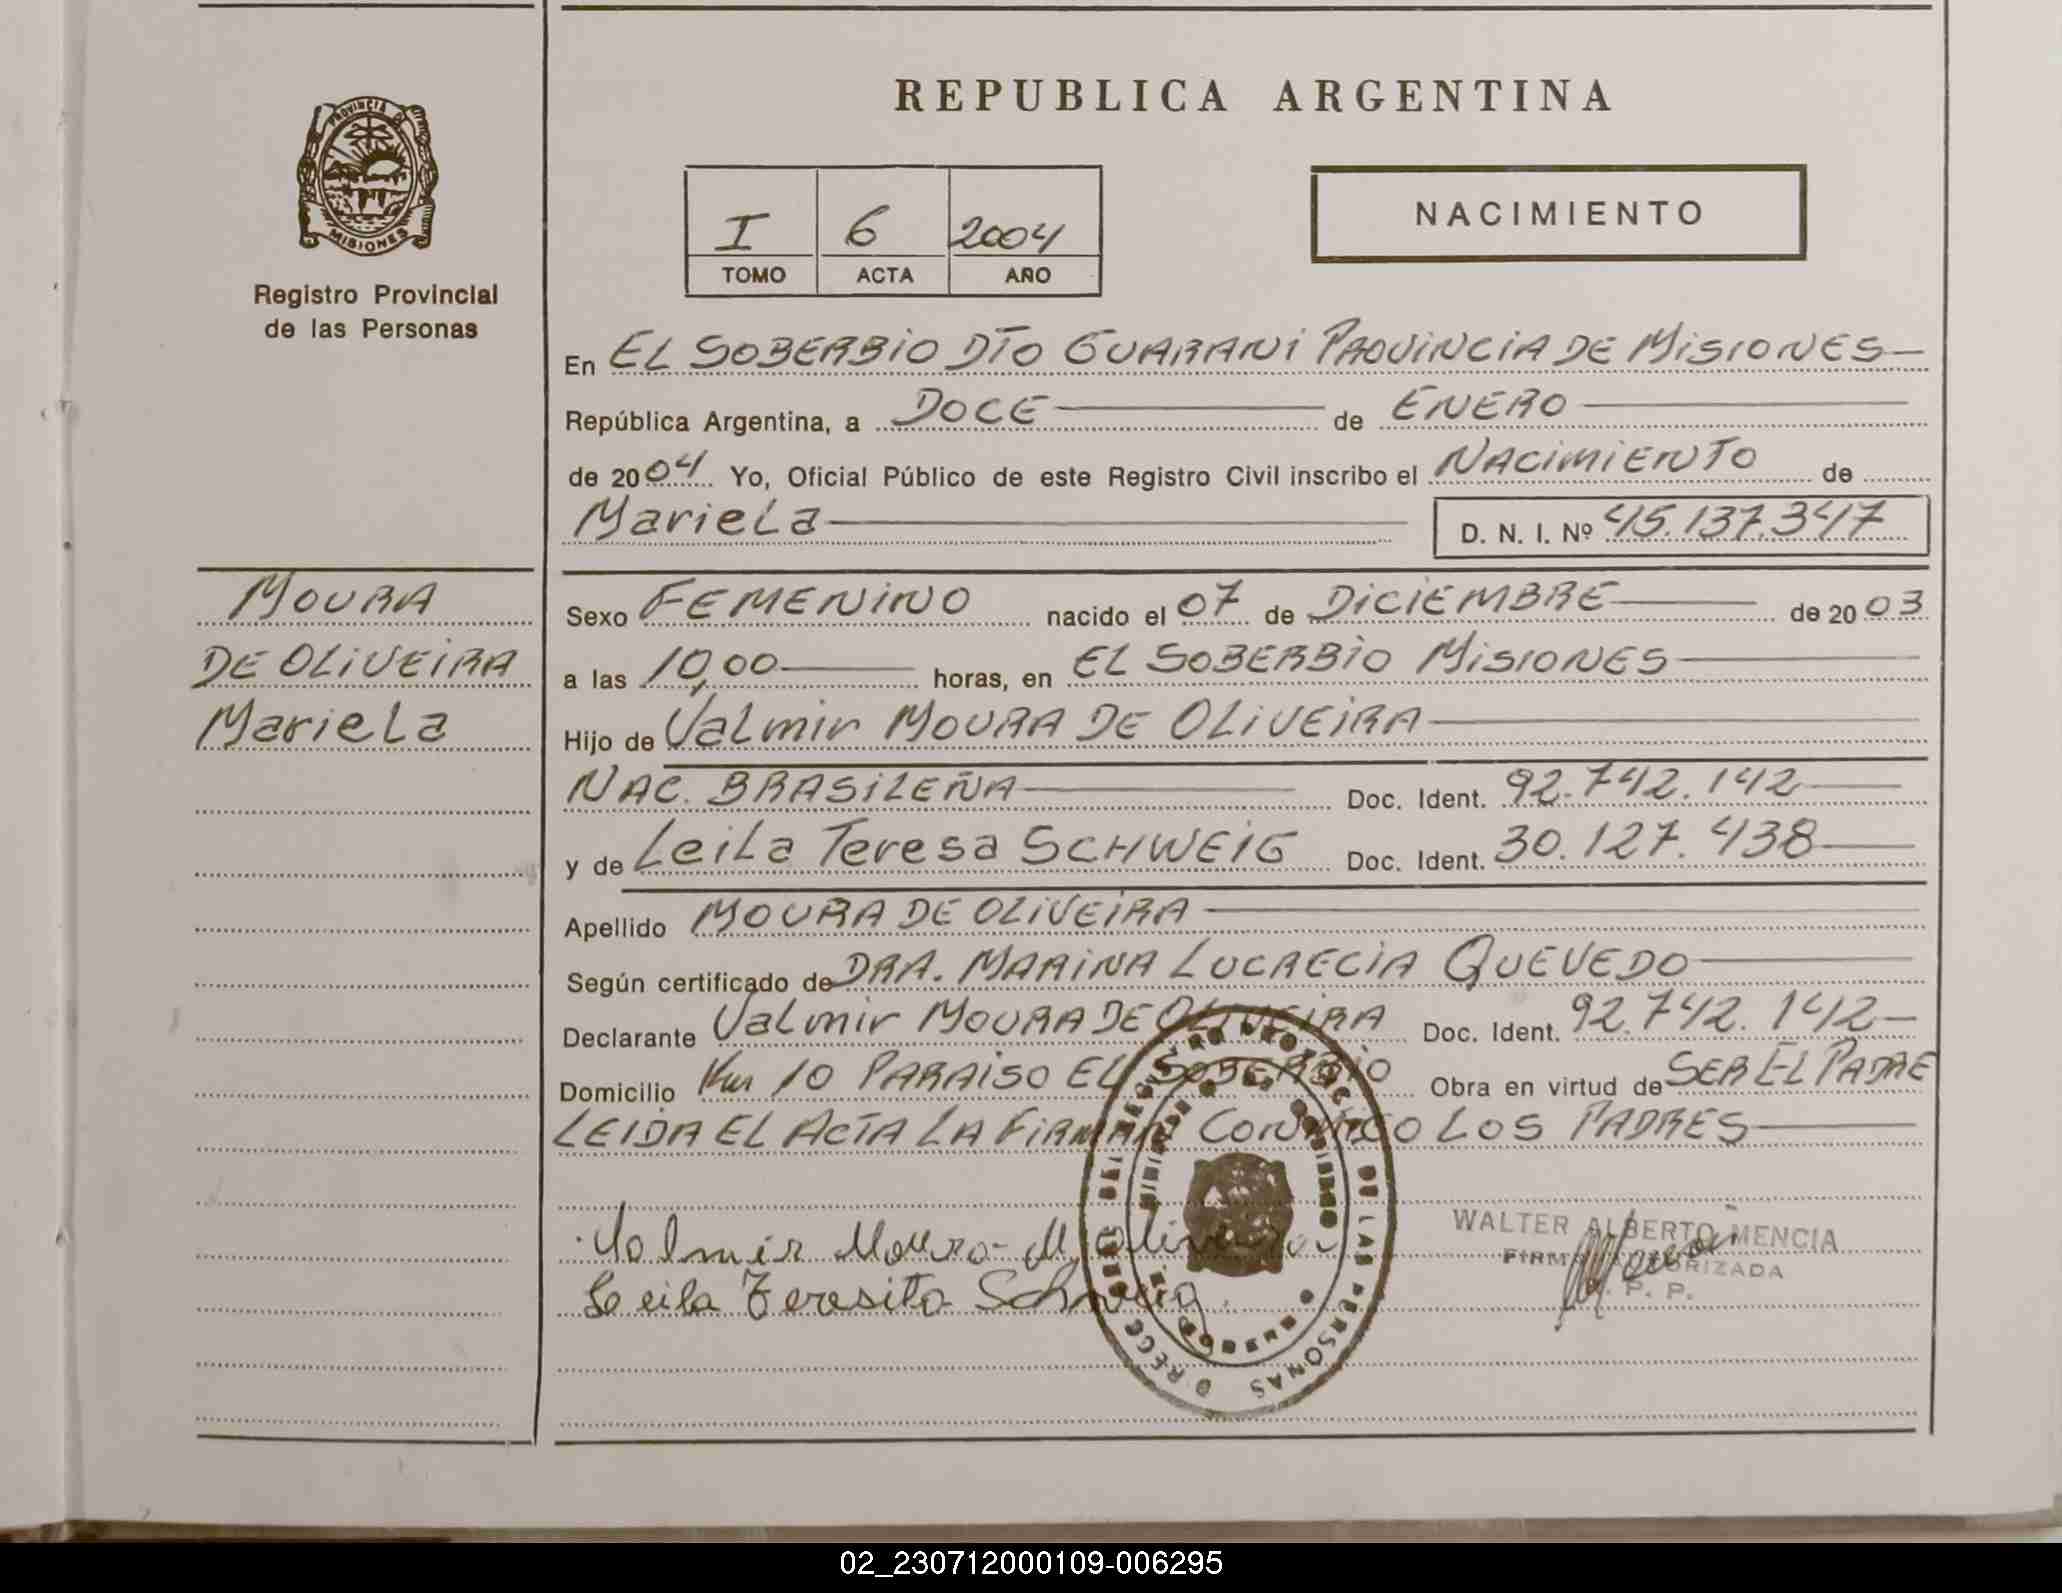 REPUBLICA ARGENTINA
PROVINCIA DE
MISIONES
Registro Provincial
de las Personas
I 6 2004
TOMO ACTA AÑO
NACIMIENTO
En EL SOBERBIO DTO GUARANI PROVINCIA DE MISIONES
República Argentina, a DOCE de ENERO
de 2004 Yo, Oficial Público de este Registro Civil inscribo el NACIMIENTO de
Mariela D. N. I. Nº 45.137.347
MOURA
DE OLIVEIRA
Mariela
Sexo FEMENINO nacido el 07 de DICIEMBRE de 2003
a las 10,00 horas, en EL SOBERBIO MISIONES
Hijo de Valmir MOURA DE OLIVEIRA
NAC. BRASILEÑA Doc. Ident. 92.742.142
y de Leila Teresa SCHWEIG Doc. Ident. 30.127.438
Apellido MOURA DE OLIVEIRA
Según certificado de DRA. MARINA LUCRECIA QUEVEDO
Declarante Valmir MOURA DE OLIVEIRA Doc. Ident. 92.742.142
Domicilio Km 10 PARAISO EL SOBERBIO Obra en virtud de SER EL PADRE
LEIDA EL ACTA LA FIRMAN CONMIGO LOS PADRES
Valmir Moura de Oliveira
Leila Teresita Schweig
DE LAS PERSONAS
WALTER ALBERTO MENCIA
FIRMA AUTORIZADA
R. P. P.
02_230712000109-006295